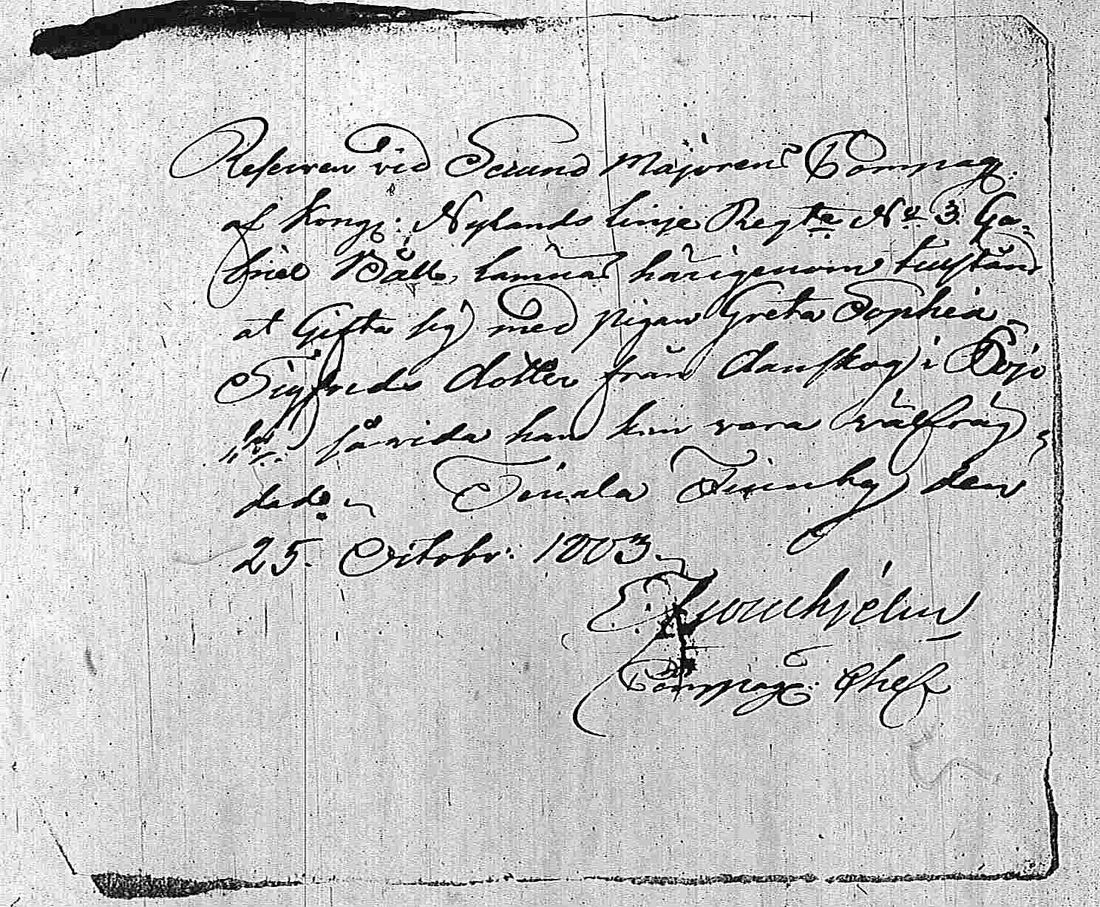 Reserven vid Secund Majorens Compag:
af Kongl: Nylands linje Regte No 3. Ga-
briel Båll, lämnas härigenom tillstånd
at Gifta sig med pigan Greta Sophia
Sigfreds dotter från danskog i Bojo
så vida han kan vara wälfräg
dade. Tenala den
25. Octobr: 1803.
Compag: Chef